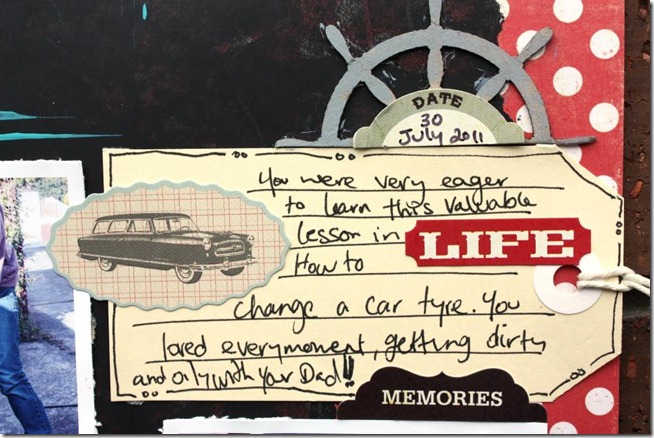 DATE
30
July 2011
You were very eager
to learn this valuable
lesson in LIFE
How to
change a car tyre. You
loved every moment, getting dirty
and oily with your Dad!!
MEMORIES